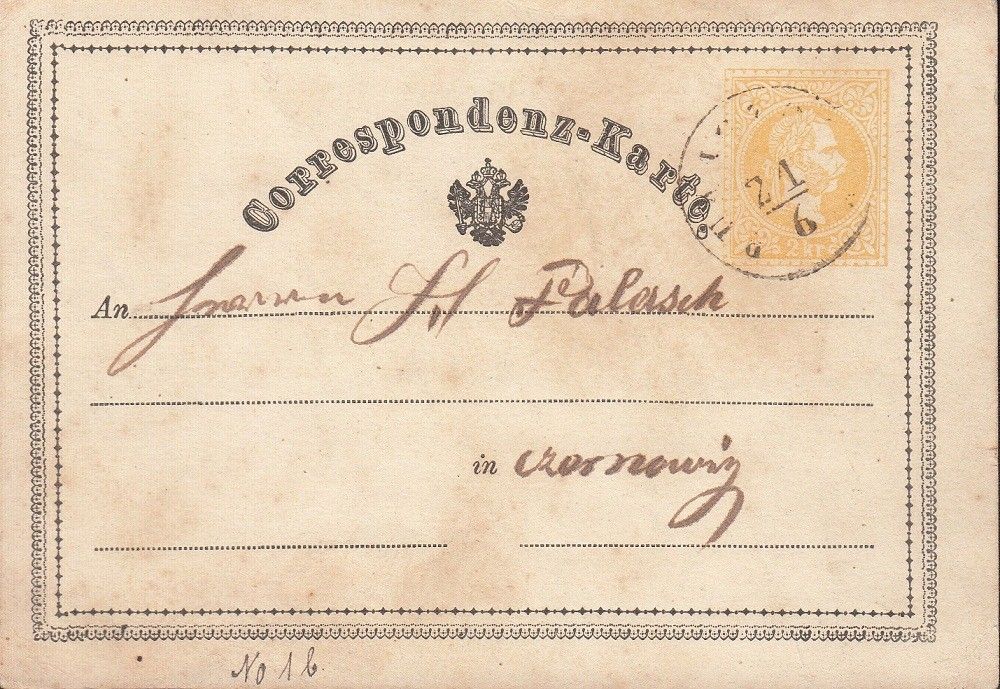 Correspondenz-Karte.
21/6
2 kr.
An Herrn H Palasch
in Czernowiz
No 1b.